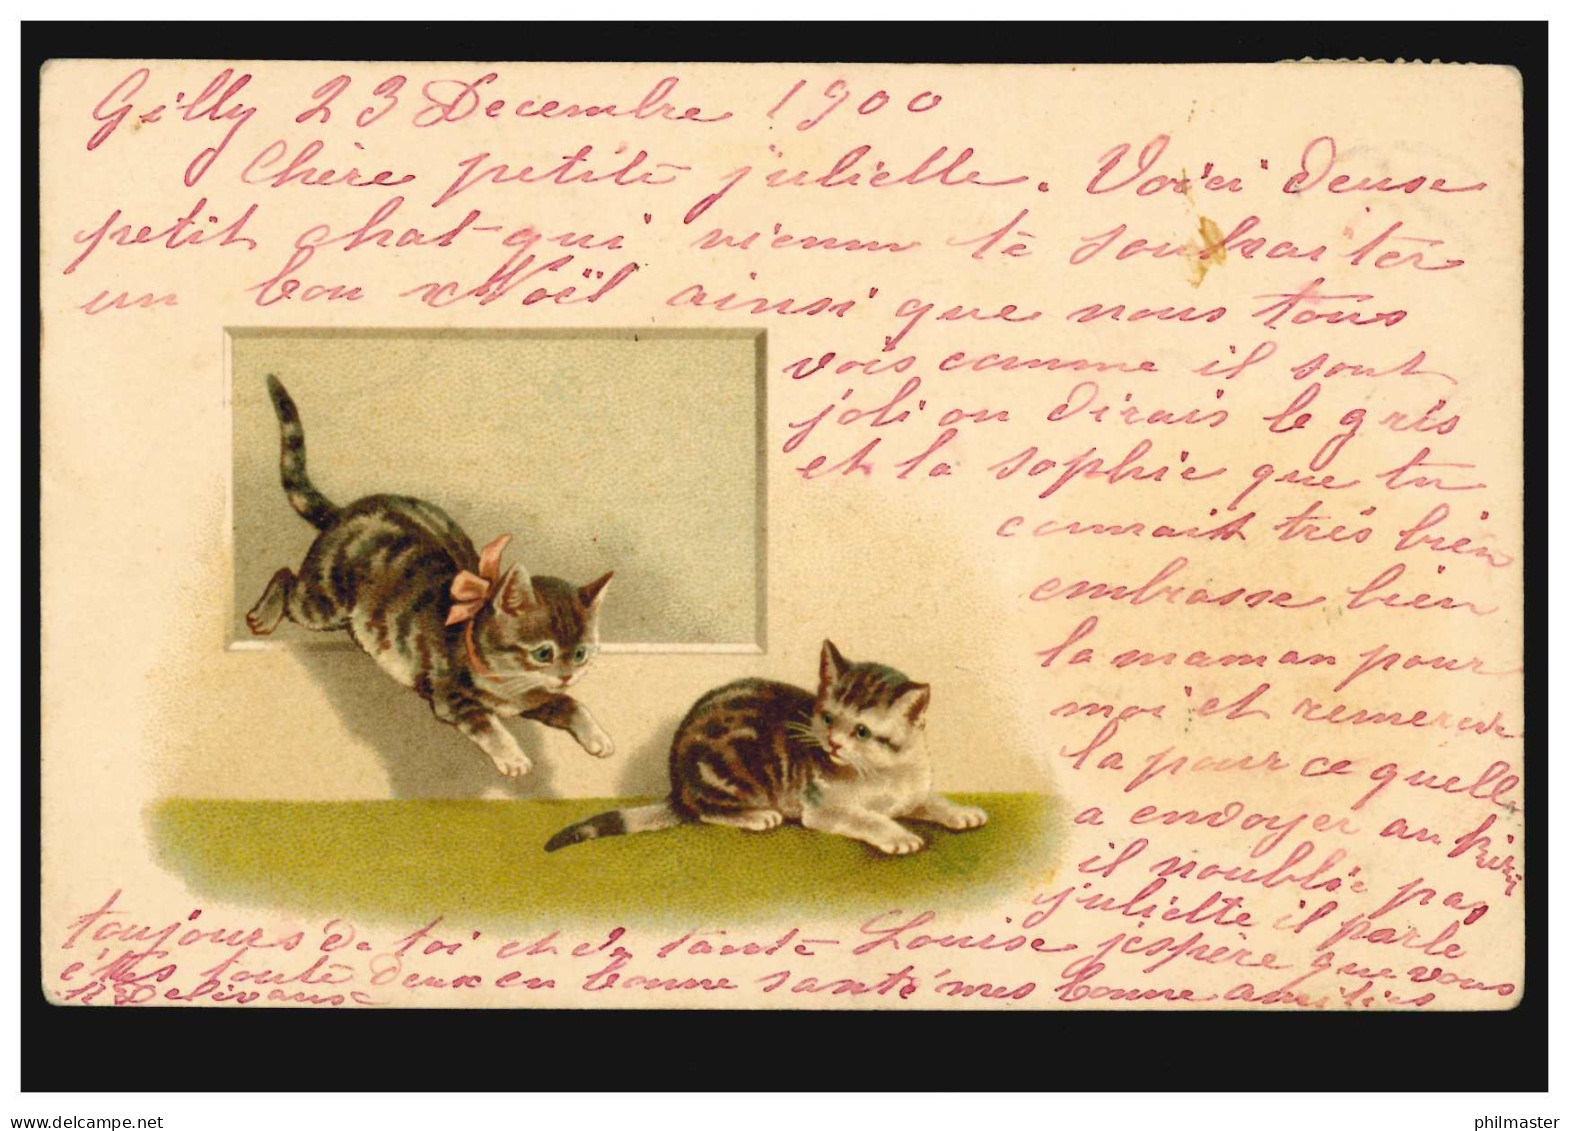 Gilly 23 Decembre 1900
Chère petite julielle. Voiçi deuse
petit chat qui vienn te souhaiter
un bon Noël ainsi que nous tous
vois comme il sont
joli on dirais le gris
et la sophie que tu
connait très bien
embrasse bien
la maman pour
moi et remercie
la pour ce quelle
a envoyer au
il noublie pas
juliette il parle
toujours de toi et de tante Louise j'espère que vous
êtes toute deux en bonne santé mes bonne amitiés
Delivaux
delcampe.net
philmaster